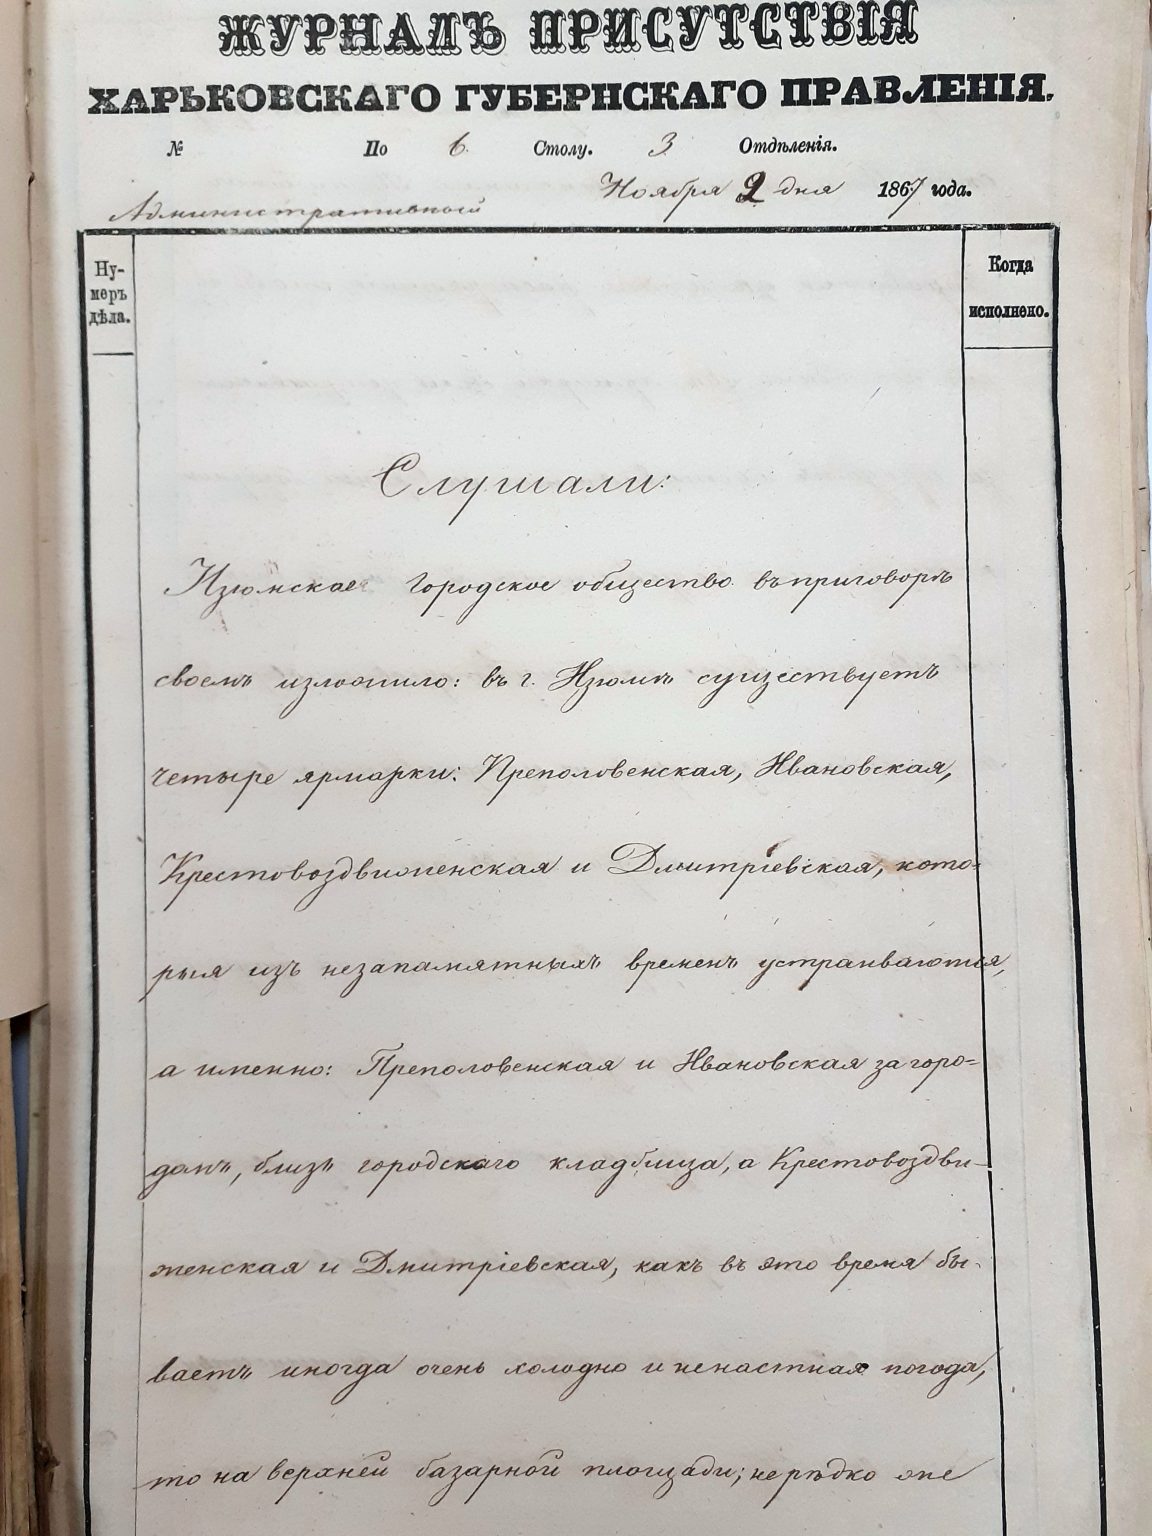 ЖУРНАЛЪ ПРИСУТСТВІЯ
ХАРЬКОВСКАГО ГУБЕРНСКАГО ПРАВЛЕНІЯ.
№ По 6. Столу. 3 Отдѣленія.
Ноября 2 дня 1867 года.
Административной
Ну-
меръ
дѣла.
Когда
исполнено.
Слушали:
Изюмское Городское общество въ приговорѣ
своемъ изложило: въ г. Изюмѣ существуетъ
четыре ярмарки: Преполовенская, Ивановская,
Крестовоздвиженская и Дмитріевская, кото-
рыя изъ незапамятныхъ временъ устраиваются,
а именно: Преполовенская и Ивановская за горо-
домъ, близъ городскаго кладбища, а Крестовоздви-
женская и Дмитріевская, какъ въ это время бы-
ваетъ иногда очень холодно и ненастная погода,
то на верхней базарной площади; нерѣдко же